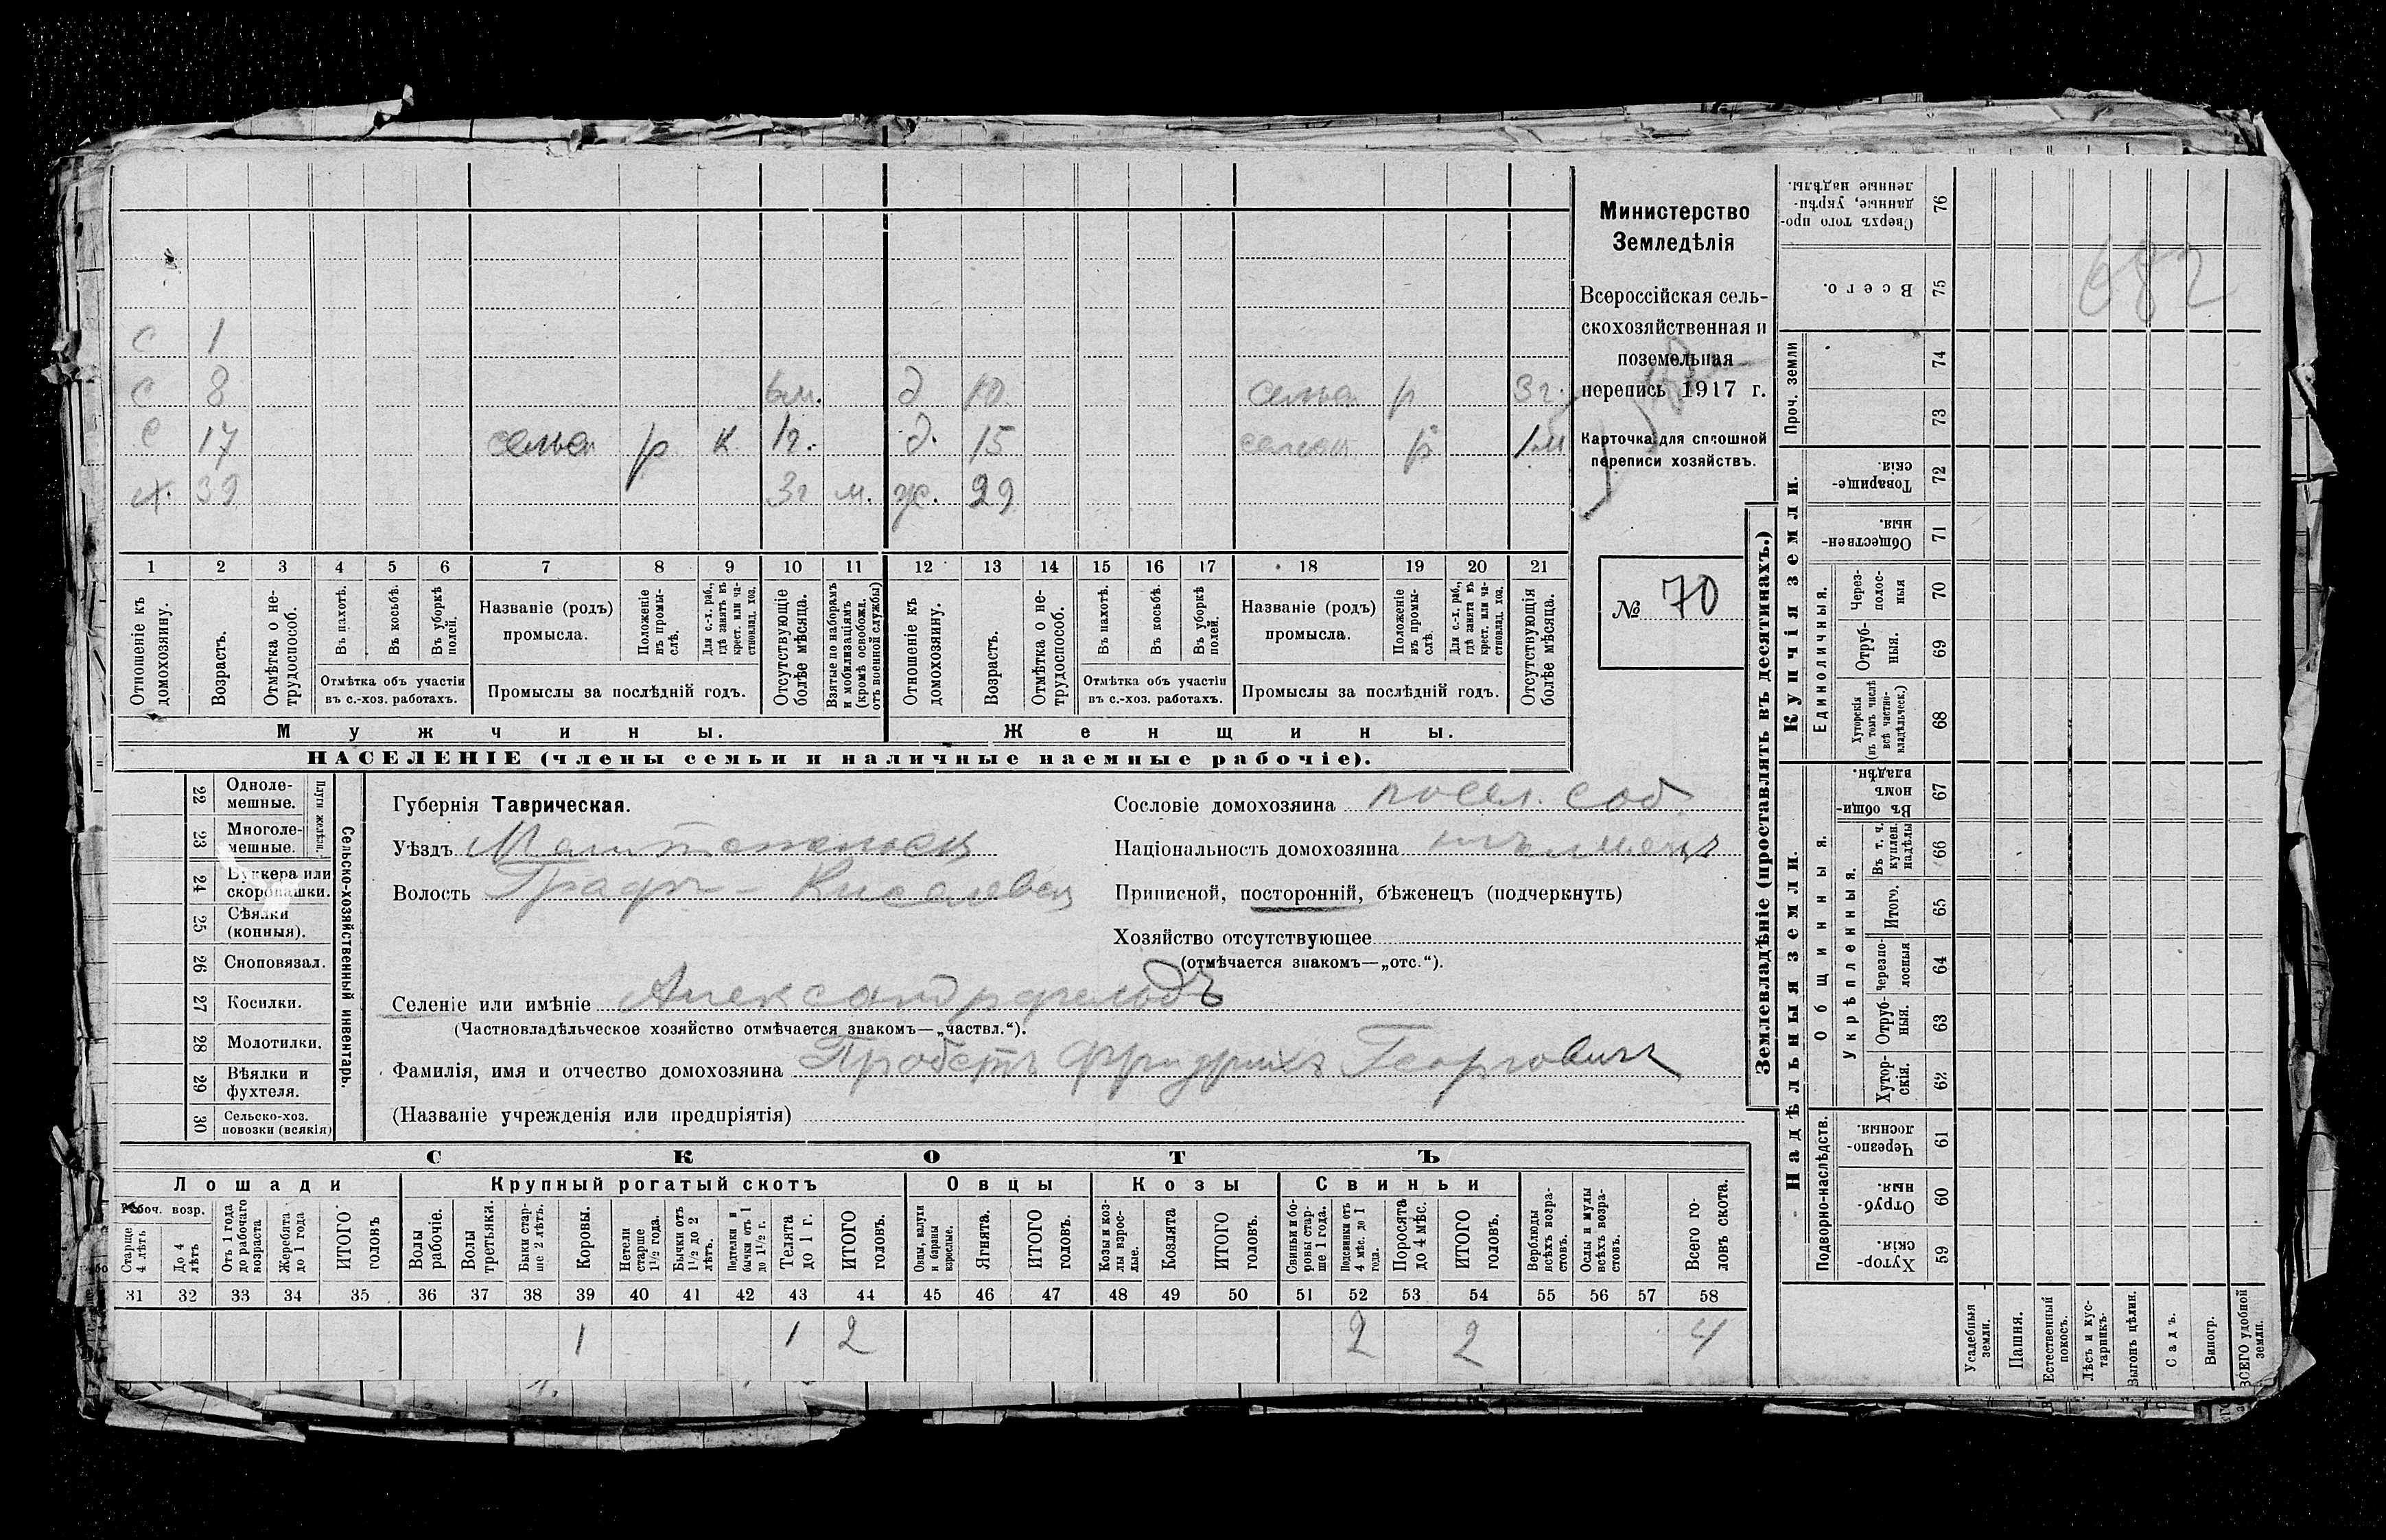 Министерство
Земледѣлія
Всероссійская сель-
скохозяйственная и
поземельная
перепись 1917 г.
Карточка для сплошной
переписи хозяйствъ.
№ 70
682
с 1
с 8 6м. д 10 р 3г.
с 17 р к 1г. д. 15 р 1м
х. 39 3г м. ж. 29
1 2 3 4 5 6 7 8 9 10 11 12 13 14 15 16 17 18 19 20 21
Отношеніе къ домохозяину.
Возрастъ.
Отмѣтка о не-трудоспособ.
Въ пахотѣ.
Въ косьбѣ.
Въ уборкѣ полей.
Отмѣтка объ участіи въ с.-хоз. работахъ.
Названіе (родъ) промысла.
Положеніе въ промы-слѣ.
Для с.-х. раб., гдѣ занятъ въ крест. или ча-стновлад. хоз.
Промыслы за послѣдній годъ.
Отсутствующіе болѣе мѣсяца.
Взятые по наборамъ и мобилизаціямъ (кромѣ освобожд. отъ военной службы)
Отношеніе къ домохозяину.
Возрастъ.
Отмѣтка о не-трудоспособ.
Въ пахотѣ.
Въ косьбѣ.
Въ уборкѣ полей.
Отмѣтка объ участіи въ с.-хоз. работахъ.
Названіе (родъ) промысла.
Положеніе въ промы-слѣ.
Для с.-х. раб., гдѣ занята въ крест. или ча-стновлад. хоз.
Промыслы за послѣдній годъ.
Отсутствующія болѣе мѣсяца.
Мужчины. Женщины.
НАСЕЛЕНІЕ (члены семьи и наличные наемные рабочіе).
22 Одноле-мешные.
23 Многоле-мешные.
Плуги желѣзн.
24 Буккера или скоропашки.
25 Сѣялки (конныя).
26 Сноповязал.
27 Косилки.
28 Молотилки.
29 Вѣялки и фухтеля.
30 Сельско-хоз. повозки (всякія)
Сельско-хозяйственный инвентарь.
Губернія Таврическая.
Уѣздъ
Волость Графъ-Киселевск
Селеніе или имѣніе Александрфельдъ
(Частновладѣльческое хозяйство отмѣчается знакомъ—„частвл.“).
Фамилія, имя и отчество домохозяина Пробстъ Фридрихъ Георговичъ
(Названіе учрежденія или предпріятія)
Сословіе домохозяина посел. соб
Національность домохозяина
Приписной, посторонній, бѣженецъ (подчеркнуть)
Хозяйство отсутствующее
(отмѣчается знакомъ—„отс.“).
СКОТЪ
Лошади Крупный рогатый скотъ Овцы Козы Свиньи
Рабоч. возр.
Старше 4 лѣтъ
До 4 лѣтъ
Отъ 1 года до рабочаго возраста
Жеребята до 1 года
ИТОГО головъ
Волы рабочіе.
Волы третьяки.
Быки стар-ше 2 лѣтъ.
Коровы.
Нетели старше 1½ года.
Бычки отъ 1½ до 2 лѣтъ.
Подтелки и бычки отъ 1 до 1½ г.
Телята до 1 г.
ИТОГО головъ.
Овцы, валухи и бараны взрослые.
Ягнята.
ИТОГО головъ.
Козы и коз-лы взрос-лые.
Козлята
ИТОГО головъ.
Свиньи и бо-ровы стар-ше 1 года.
Подсвинки отъ 4 мѣс. до 1 года.
Поросята до 4 мѣс.
ИТОГО головъ.
Верблюды всѣхъ возра-стовъ.
Ослы и мулы всѣхъ возра-стовъ.
Всего го-ловъ скота.
31 32 33 34 35 36 37 38 39 40 41 42 43 44 45 46 47 48 49 50 51 52 53 54 55 56 57 58
1 1 2 2 2 4
Землевладѣніе (проставлять въ десятинахъ.)
Купчія земли.
Надѣльныя земли.
76 Сверхъ того про-данные, укрѣп-ленные надѣлы.
75 Всего.
74
73
Проч. земли
72 Товарище-скія.
71 Обществен-ныя.
Единоличныя.
70 Через-полос-ныя
69 Отруб-ныя.
68 Хуторскія (въ томъ числѣ всѣ частно-владѣльческ.)
67 Въ общи-номъ владѣн.
66 Въ т. ч. куплен. надѣлы
65 Итого.
64 Черезпо-лосныя
63 Отруб-ныя.
62 Хутор-скія.
Общинныя.
Укрѣпленныя.
Подворно-наслѣдств.
61 Черезпо-лосныя.
60 Отруб-ныя.
59 Хутор-скія.
Усадебныя земли.
Пашня.
Естественный покосъ.
Лѣсъ и кус-тарникъ.
Выгонъ цѣлин.
Садъ.
Виногр.
ВСЕГО удобной земли.